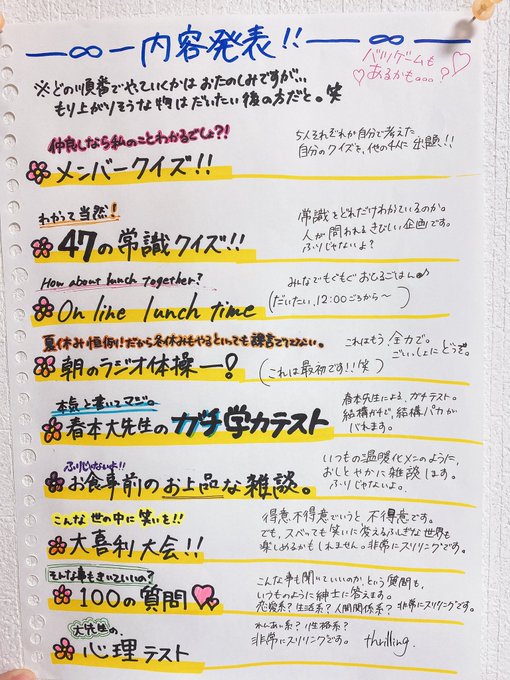 内容発表!!
バツゲームも
あるかも。。。?
※どの順番でやっていくかはおたのしみですが、、
もり上がりそうな物はだいたい後の方だと。笑
仲良しなら私のことわかるでしょ?!
メンバークイズ!!
5人それぞれが自分で考えた
自分のクイズを、他の4人に出題!!
わかって当然!
47の常識クイズ!!
常識をどれだけわかっているのか。
人が問われるきびしい企画です。
ふりじゃないよ?
How about lunch together?
On line lunch time
みんなでもぐもぐおひるごはん♪
(だいたい、12:00ごろから〜)
夏休み恒例!だから冬休みもやるといっても過言でない。
朝のラジオ体操ー!
(これは最初です!!笑)
これはもう全力で。
ごいっしょにどうぞ。
本気と書いてマジの
春本大先生のガチ学力テスト
春本先生による、ガチテスト。
結構ガチで、結構バカが
バレます。
ふりじゃないよ!!
お食事前のお上品な雑談。
いつもの温暖化メンのように、
おしとやかに雑談します。
ふりじゃないよ。
こんな世の中に笑いを!!
大喜利大会!!
得意、不得意でいうと不得意です。
でも、スベっても笑いに変えるふしぎな世界も
楽しめるかもしれません。非常にスリリングです。
そんな事もきいていいの?
100の質問
こんな事も聞いていいのか、という質問も、
いつものように紳士に答えます。
恋愛系?生活系?人間関係系?非常にスリリングです。
大先生の、
心理テスト
れんあい系?性格系?
非常にスリリングです。 thrilling.